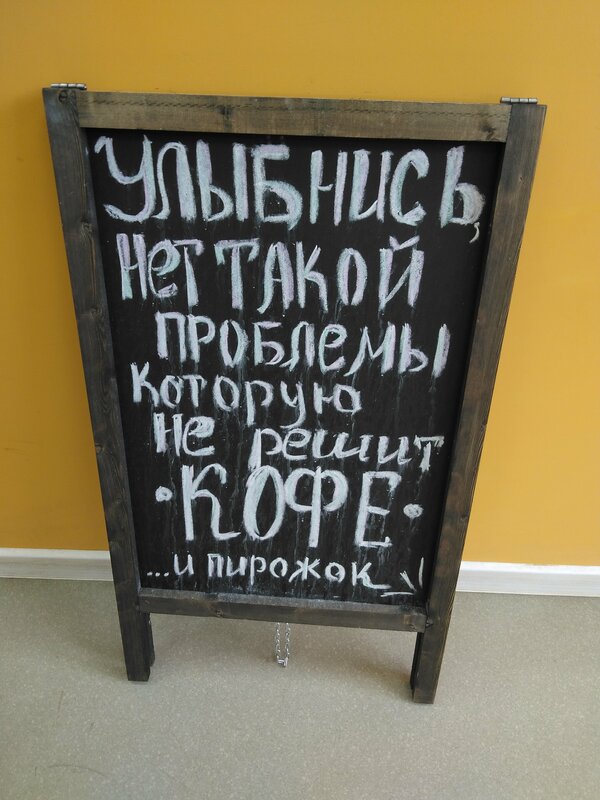 УЛЫБНИСЬ,
НЕТ ТАКОЙ
ПРОБЛЕМЫ
КОТОРУЮ
НЕ РЕШИТ
• КОФЕ •
...И ПИРОЖОК